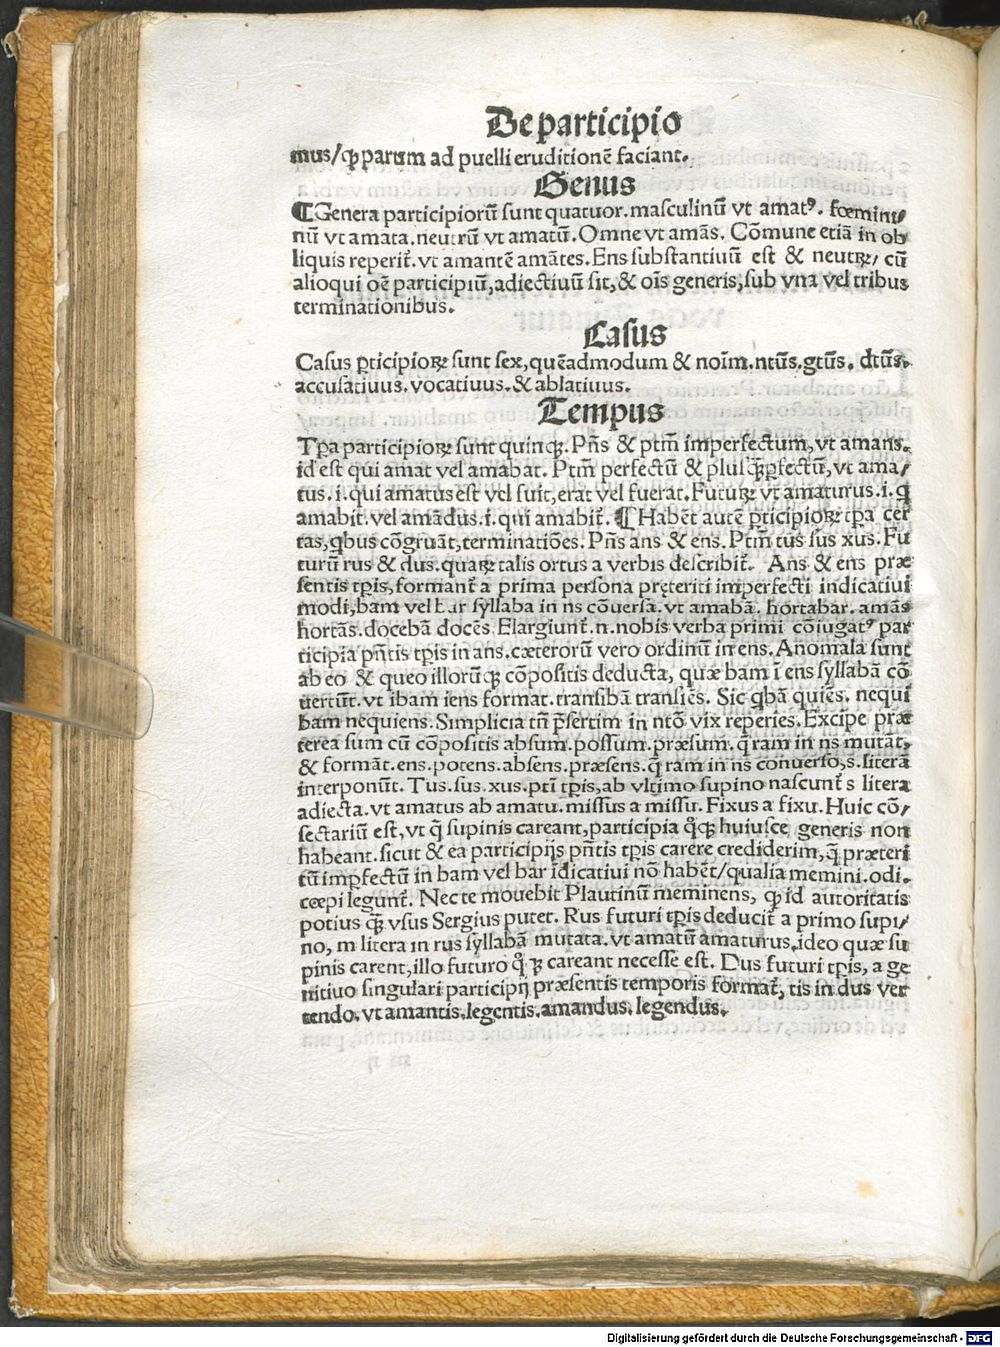 De participio
mus/ꝙ parum ad puelli eruditionẽ faciant.
Genus
¶Genera participiorũ sunt quatuor. masculinũ vt amatꝰ. fœmini/
nũ vt amata. neutrũ vt amatũ. Omne vt amãs. Cõmune etiã in ob
liquis reperit̃. vt amantẽ amãtes. Ens substantiuũ est & neutrꝝ/ cũ
alioqui oẽ participiũ, adiectiuũ sit, & oĩs generis, sub vna vel tribus
terminationibus.
Casus
Casus ꝑticipioꝝ sunt sex, quẽadmodum & noĩm. ntũs. gtũs. dtũs.
accusatiuus. vocatiuus. & ablatiuus.
Tempus
Tꝑa participioꝝ sunt quinqꝫ. Pñs & ptm̃ imperfectum, vt amans.
id est qui amat vel amabat. Ptm̃ perfectũ & plusq̃ꝑfectũ, vt ama/
tus. i. qui amatus est vel fuit, erat vel fuerat. Futurꝝ vt amaturus. i. q
amabit. vel amadus. i. qui amabit̃. ¶ Habẽt autẽ ꝑticipioꝝ tꝑa cer
tas, qbus cõgruãt, terminatiões. Pñs ans & ens. Ptm̃ tus sus xus. Fu
turũ rus & dus. quaꝝ talis ortus a verbis describit̃. Ans & ens præ
sentis tꝑis, formant̃ a prima persona pręteriti imperfecti indicatiui
modi, bam vel bar syllaba in ns cõuersa. vt amabã. hortabar. amãs
hortãs. docebã docẽs. Elargiunt̃. n. nobis verba primi cõiugatꝰ par
ticipia pñtis tꝑis in ans. cæterorũ vero ordinũ in ens. Anomala sunt
ab eo & queo illorũqꝫ cõpositis deducta, quæ bam ĩ ens syllabã cõ
uertũt. vt ibam iens format. transibã transiẽs. Sic qbã quiẽs. nequi
bam nequiens. Simplicia tñ p̃sertim in ntõ vix reperies. Excipe præ
terea sum cũ cõpositis absum. possum. præsum. q̃ ram in ns mutãt,
& formãt. ens. potens. absens. præsens. q̃ ram in ns conuerso, s. literã
interponũt. Tus. sus. xus. ptĩ tꝑis, ab vltimo supino nascunt̃ s litera
adiecta. vt amatus ab amatu. missus a missu. Fixus a fixu. Huic cõ/
sectariũ est, vt q̃ supinis careant, participia q̊qꝫ huiusce generis non
habeant. sicut & ea participijs pñtis tꝑis carere crediderim, q̃ præteri
tũ imꝑfectũ in bam vel bar ĩdicatiui nõ habẽt/ qualia memini. odi.
cœpi legunt̃. Nec te mouebit Plautinũ meminens, ꝙ id autoritatis
potius q̃ꝫ vsus Sergius putet. Rus futuri tꝑis deducit̃ a primo supi/
no, m litera in rus syllabã mutata. vt amatũ amaturus. ideo quæ su
pinis carent, illo futuro q̊qꝫ careant necesse est. Dus futuri tꝑis, a ge
nitiuo singulari participij præsentis temporis format̃, tis in dus ver
tendo. vt amantis. legentis. amandus. legendus.
Digitalisierung gefördert durch die Deutsche Forschungsgemeinschaft - DFG